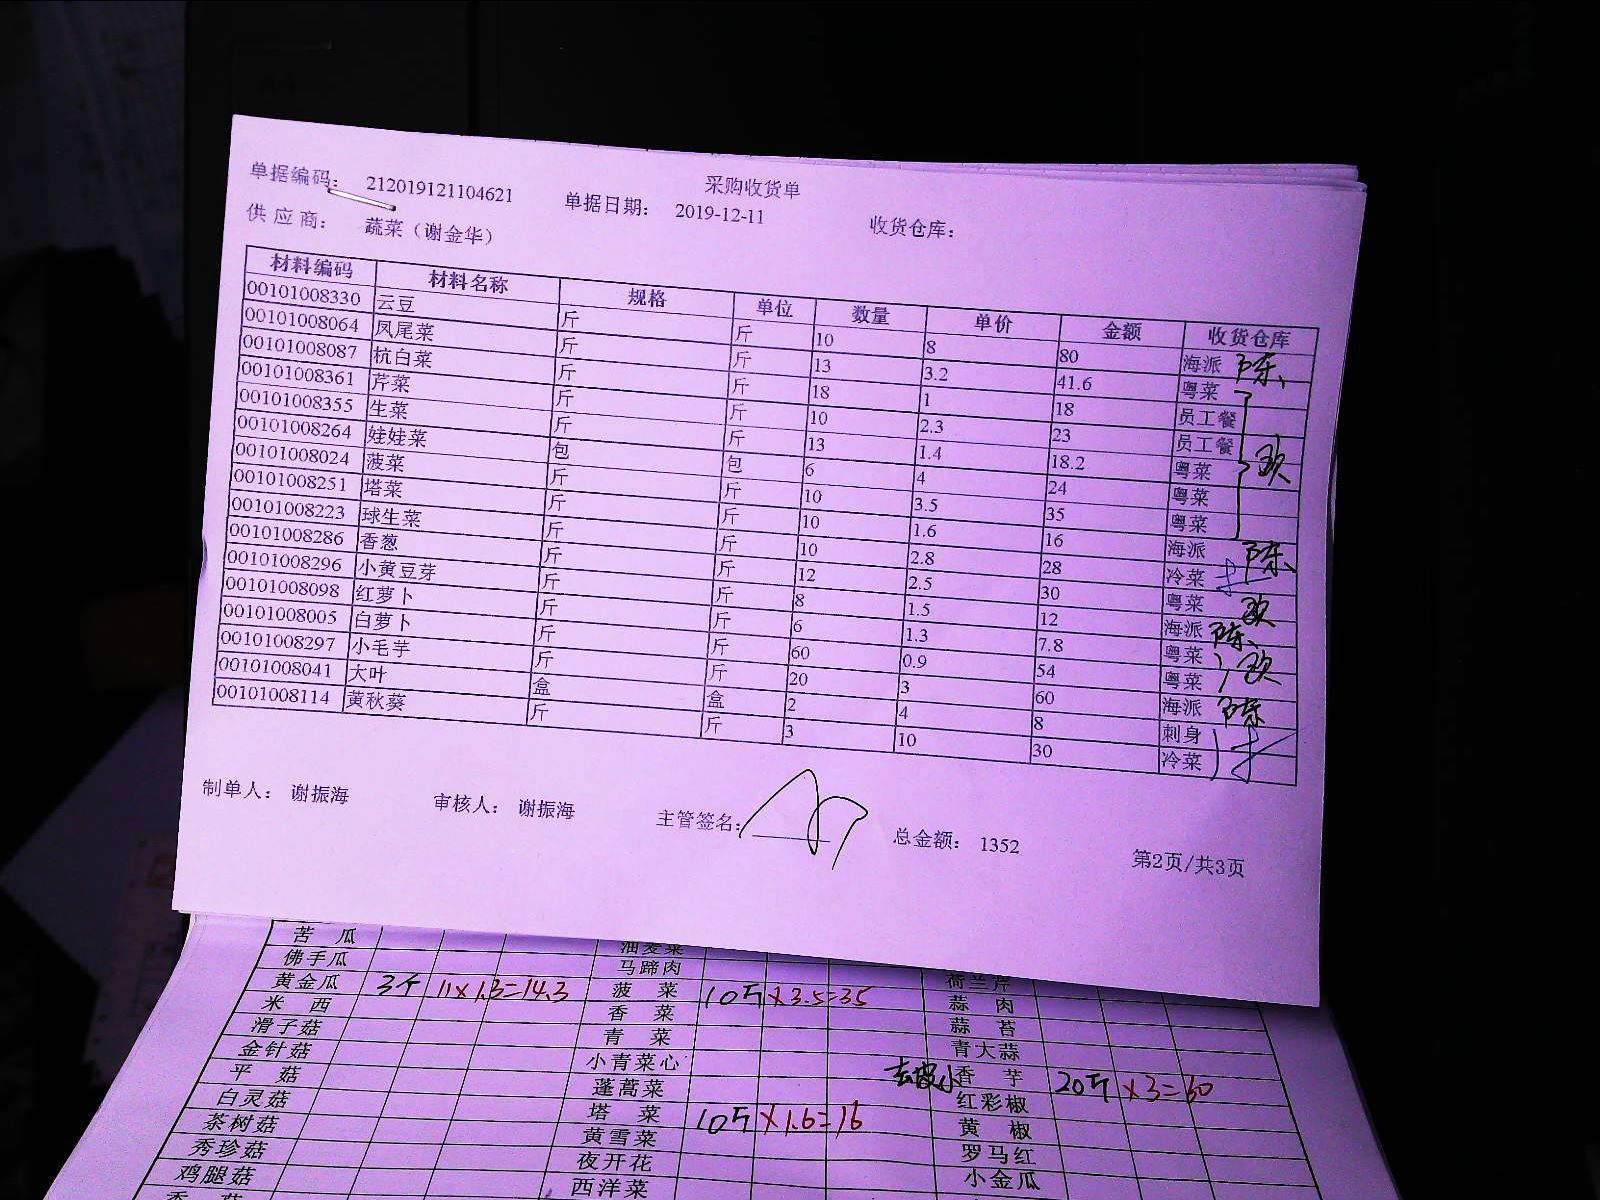 采购收货单
单据编码： 212019121104621 单据日期： 2019-12-11 收货仓库：
供应商： 蔬菜（谢金华）
材料编码 材料名称 规格 单位 数量 单价 金额 收货仓库
00101008330 云豆 斤 斤 10 8 80 海派 陈
00101008064 凤尾菜 斤 斤 13 3.2 41.6 粤菜
00101008087 杭白菜 斤 斤 18 1 18 员工餐
00101008361 芹菜 斤 斤 10 2.3 23 员工餐
00101008355 生菜 斤 斤 13 1.4 18.2 粤菜
00101008264 娃娃菜 包 包 6 4 24 粤菜
00101008024 菠菜 斤 斤 10 3.5 35 粤菜
00101008251 塔菜 斤 斤 10 1.6 16 海派 陈
00101008223 球生菜 斤 斤 10 2.8 28 冷菜
00101008286 香葱 斤 斤 12 2.5 30 粤菜
00101008296 小黄豆芽 斤 斤 8 1.5 12 海派 陈
00101008098 红萝卜 斤 斤 6 1.3 7.8 粤菜
00101008005 白萝卜 斤 斤 60 0.9 54 粤菜
00101008297 小毛芋 斤 斤 20 3 60 海派 陈
00101008041 大叶 盒 盒 2 4 8 刺身
00101008114 黄秋葵 斤 斤 3 10 30 冷菜
制单人： 谢振海 审核人： 谢振海 主管签名： 总金额： 1352 第2页/共3页
苦瓜 油麦菜
佛手瓜 马蹄肉 荷兰芹
黄金瓜 3个 11×1.3=14.3 菠菜 10斤×3.5=35 蒜肉
米西 香菜 蒜苔
滑子菇 青菜 青大蒜
金针菇 小青菜心 去皮小香芋 20斤×3=60
平菇 蓬蒿菜 红彩椒
白灵菇 塔菜 10斤×1.6=16 黄椒
茶树菇 黄雪菜 罗马红
秀珍菇 夜开花 小金瓜
鸡腿菇 西洋菜